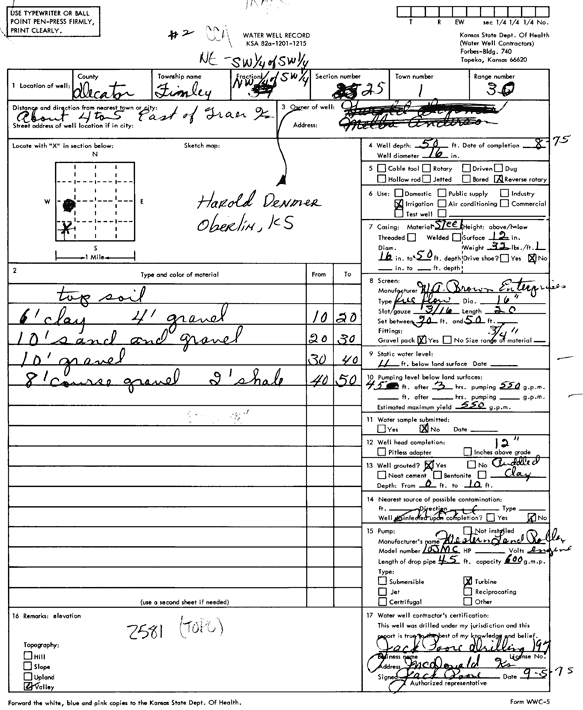 USE TYPEWRITER OR BALL
POINT PEN-PRESS FIRMLY,
PRINT CLEARLY.
#2
WATER WELL RECORD
KSA 82a-1201-1215
T R EW sec 1/4 1/4 1/4 No.
Kansas State Dept. Of Health
(Water Well Contractors)
Forbes-Bldg. 740
Topeka, Kansas 66620
NE - SW 1/4 of SW 1/4
1 Location of well: County Township name Fraction NW 1/4 of SW 1/4 Section number Town number Range number
Decator Finley 25 1 30
Distance and direction from nearest town or city:
About 4 to 5 East of Traer Ks
Street address of well location if in city:
3 Owner of well:
Address: Melba Anderson
Harold Denmer
Oberlin, KS
Locate with "X" in section below:
Sketch map:
N
W E
X
S
1 Mile
4 Well depth: 50 ft. Date of completion 8-75
Well diameter 16 in.
5 Cable tool Rotary Driven Dug
Hollow rod Jetted Bored X Reverse rotary
6 Use: Domestic Public supply Industry
X Irrigation Air conditioning Commercial
Test well
7 Casing: Material Steel Height: above/below
Threaded Welded Surface 12 in.
Diam. Weight 32 lbs./ft.
16 in. to 50 ft. depth Drive shoe? Yes X No
in. to ft. depth
8 Screen:
Manufacturer W.A. Brown Enterprises
Type Free flow Dia. 16"
Slot/gauze 3/16 Length 20
Set between 30 ft. and 50 ft.
Fittings:
Gravel pack X Yes No Size range of material 3/4"
9 Static water level:
11 ft. below land surface Date
10 Pumping level below land surfaces:
45 ft. after 3 hrs. pumping 550 g.p.m.
ft. after hrs. pumping g.p.m.
Estimated maximum yield 550 g.p.m.
11 Water sample submitted:
Yes X No Date
12 Well head completion: 12"
Pitless adapter Inches above grade
13 Well grouted? X Yes No Puddled
Neat cement Bentonite Clay
Depth: From 0 ft. to 10 ft.
14 Nearest source of possible contamination:
ft. Direction Type
Well disinfected upon completion? Yes X No
15 Pump: Not installed
Manufacturer's name Western Land Roller
Model number 10DMC HP Volts engine
Length of drop pipe 45 ft. capacity 600 g.m.p.
Type:
Submersible X Turbine
Jet Reciprocating
Certrifugal Other
2 Type and color of material From To
top soil
6' clay 4' gravel 10 20
10' sand and gravel 20 30
10' gravel 30 40
8' course gravel 2' shale 40 50
(use a second sheet if needed)
16 Remarks: elevation
2581 (TOPO)
Topography:
Hill
Slope
Upland
X Valley
17 Water well contractor's certification:
This well was drilled under my jurisdiction and this
report is true to the best of my knowledge and belief.
Jack Poore drilling 197
Business name License No.
Address McDonald Ks
Signed Jack Poore Date 9-5-75
Authorized representative
Forward the white, blue and pink copies to the Kansas State Dept. Of Health.
Form WWC-5